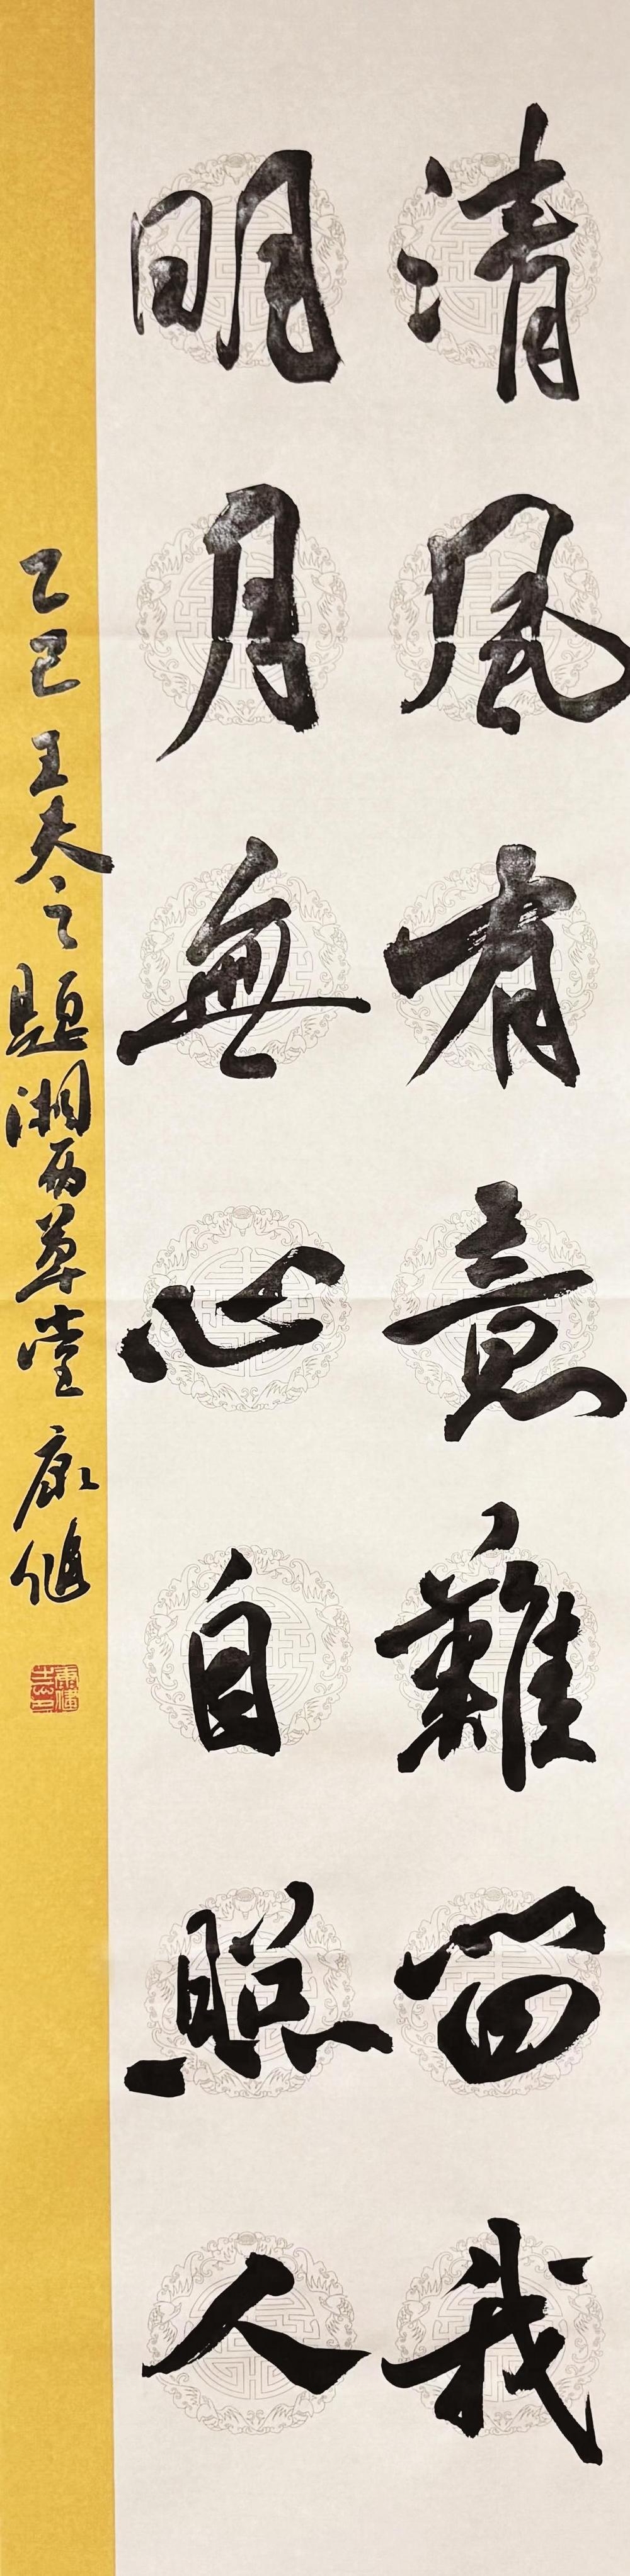 清風有意難留我
明月無心自照人
乙巳 王夫之題湘西草堂 康